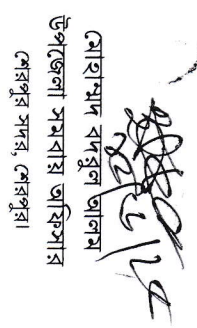 মোহাম্মদ বদরুল আলম
উপজেলা সমবায় অফিসার
শেরপুর সদর, শেরপুর।